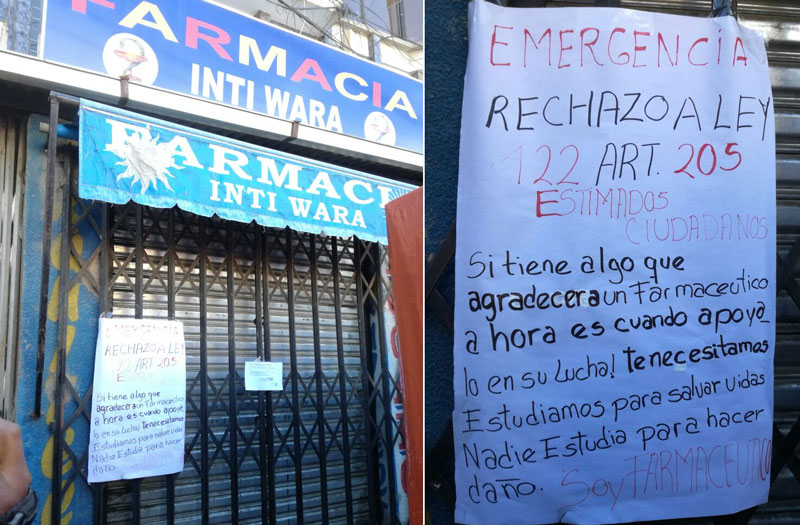 FARMACIA
INTI WARA
FARMACI
INTI WARA
EMERGENCIA
RECHAZO A LEY
122 ART. 205
ESTIMADOS
Si tiene algo que
agradecera un Farmaceutico
a hora es cuando apoya_
lo en su Lucha! Te necesitamos
Estudiamos para salvar vidas
Nadie Estudia para hacer
daño.
EMERGENCIA
RECHAZO A LEY
122 ART. 205
ESTIMADOS
CIUDADANOS
Si tiene algo que
agradecera un Farmaceutico
a hora es cuando apoya_
lo en su Lucha! Te necesitamos
Estudiamos para salvar vidas
Nadie Estudia para hacer
daño. Soy FARMACEUTICO